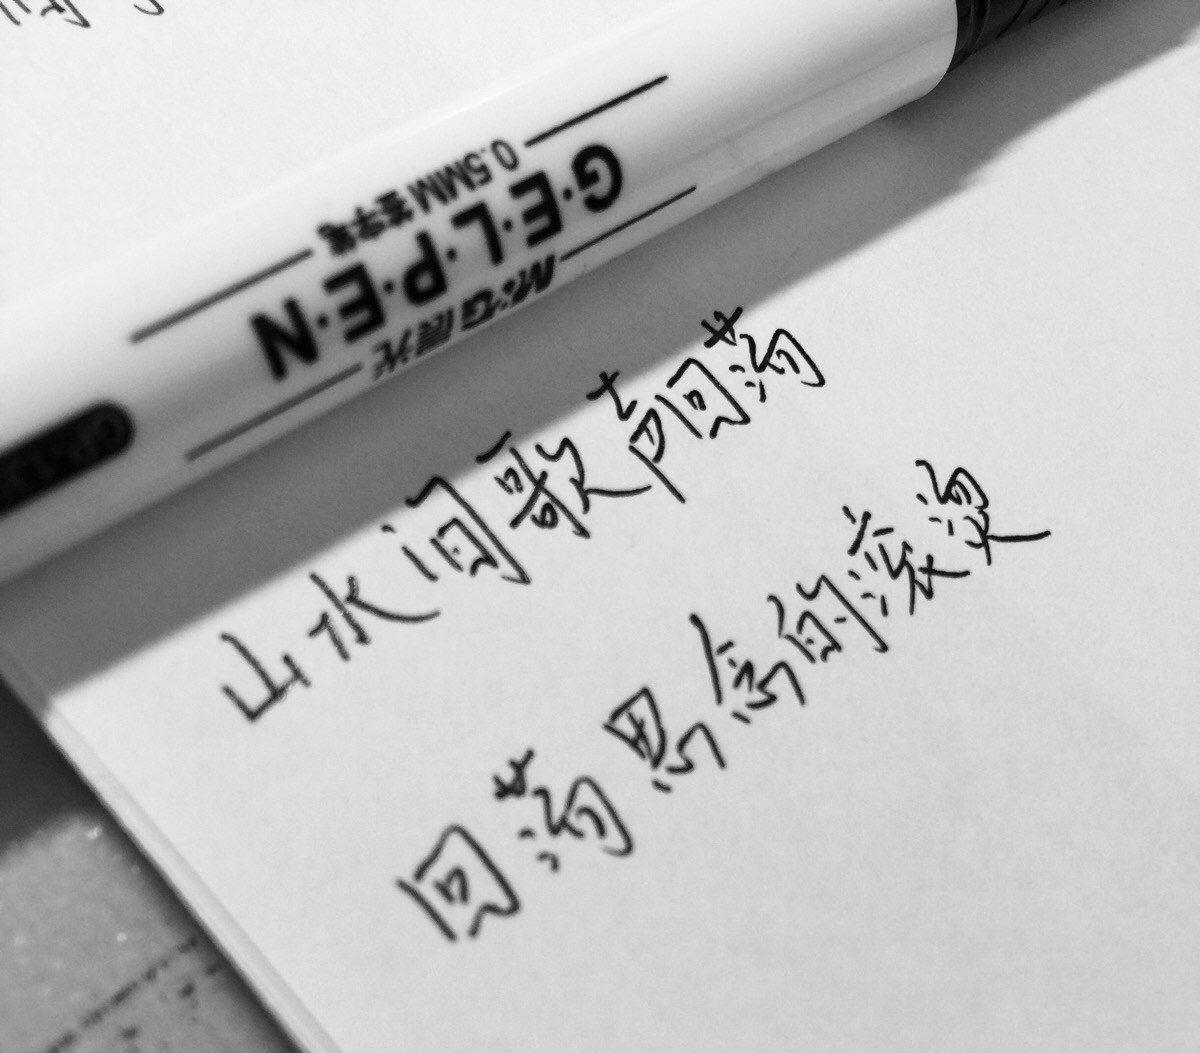 0.5MM签字笔
G·E·L·P·E·N
M&G晨光
山水间歌声回荡
回荡思念的滚烫